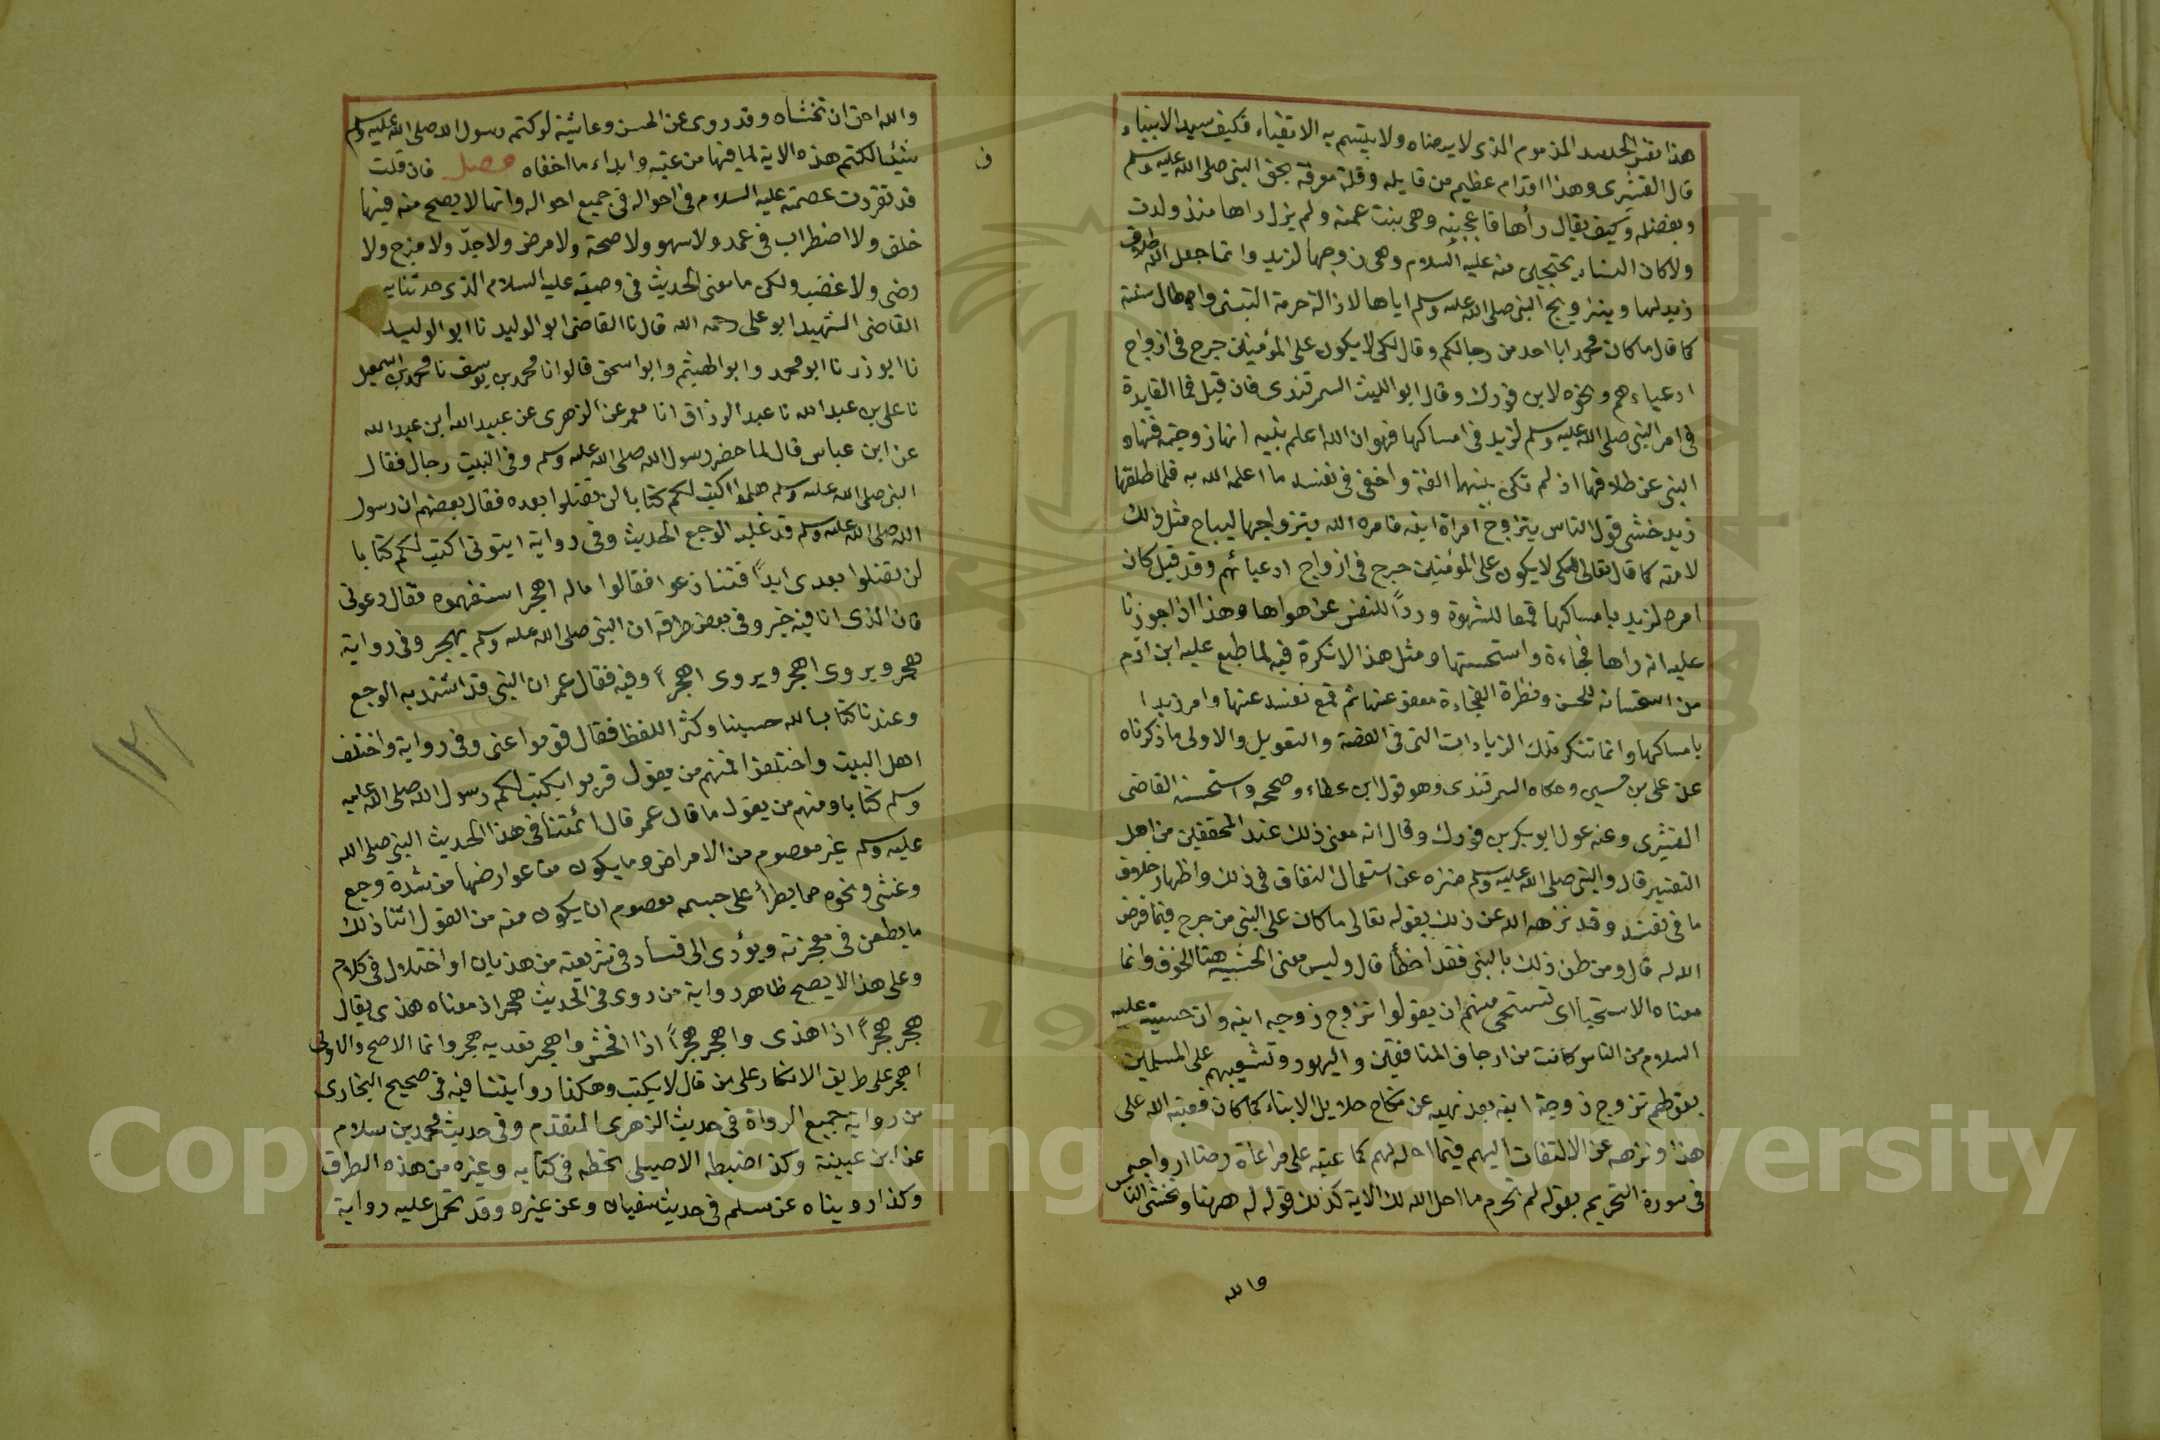 هذا نفس الحسد المذموم الذى لا يرضاه ولا يتسم به الاتقياء فكيف سيد الانبياء
قال القشيرى وهذا اقدام عظيم من قايله وقلة معرفة بحق النبى صلى الله عليه وسلم
وبفضله وكيف يقال رأها فاعجبته وهى بنت عمته ولم يزل راها منذ ولدت
ولا كان النساء يحتجبن منه عليه السلام وهى زوجها لزيد وانما جعل الله طلاق
زيد لها وتزويج النبى صلى الله عليه وسلم اياها لازالة حرمة التبنى وابطال سنته
كما قال ما كان محمد ابا احد من رجالكم وقال لكى لا يكون على المؤمنين حرج فى ازواج
ادعياءهم ونحوه لابن فورك وقال ابو الليث السمرقندى فان قيل فما الفايدة
فى امر النبى صلى الله عليه وسلم لزيد فى امساكها فهو ان الله اعلم نبيه انها زوجته فنهاه
النبى عن طلاقها اذ لم تكن بينهما الفة واخفى فى نفسه ما اعلمه الله به فلما طلقها
زيد خشى قول الناس يتزوج امراة ابنه فامره الله بتزواجها ليباح مثل ذلك
لامته كما قال تعالى لكى لا يكون على المؤمنين حرج فى ازواج ادعيائهم وقد قيل كان
امره لزيد بامساكها قمعا للشهوة وردًا للنفس عن هواها وهذا اذا جوزنا
عليه انه راها فجاءة واستحسنها ومثل هذا لا نكرة فيه لما طبع عليه ابن ادم
من استحسانه للحسن ونظرة الفجاءة معفو عنها ثم قمع نفسه عنها وامر زيدا
بامساكها وانما تنكر تلك الزيادات التى فى القصة والتعويل والاولى ما ذكرناه
عن على بن حسين وحكاه السمرقندى وهو قول ابن عطاء وصححه واستحسنه القاضى
القشيرى وعنه عول ابو بكر بن فورك وقال انه معنى ذلك عند المحققين من اهل
التفسير قال والنبى صلى الله عليه وسلم منزه عن استعمال النفاق فى ذلك واظهار خلاف
ما فى نفسه وقد نزهه الله عن ذلك بقوله تعالى ما كان على النبى من حرج فيما فرض
الله له قال ومن ظن ذلك بالنبى فقد اخطأ قال وليس معنى الخشية هنا الخوف وانما
معناه الاستحيا اى تستحى منهم ان يقولوا تزوج زوجه ابنه وان خشيته عليه
السلام من الناس كانت من ارجاف المنافقين واليهود وتشغيبهم على المسلمين
بقولهم تزوج زوجة ابنه بعد نهيه عن نكاح حلايل الابناء كما كان فعتبه الله على
هذا ونزهه عن الالتفات اليهم فيما احله لهم كما عتبه على مراعاة رضا ازواجه
فى سورة التحريم بقوله لم تحرم ما احل الله لك الاية كذلك قوله له ههنا وتخشى الناس
والله
والله احق ان تخشاه وقد روى عن الحسن وعائشة لو كتم رسول الله صلى الله عليه وسلم
شيئا لكتم هذه الاية لما فيها من عتبه وابداء ما اخفاه فصل فان قلت
ف
قد تقررت عصمته عليه السلام فى احواله فى جميع احواله وانها لا يصح منه فيها
خلف ولا اضطراب فى عمد ولا سهو ولا صحة ولا مرض ولا جدّ ولا مزح ولا
رضى ولا غضب ولكن ما معنى الحديث فى وصيته عليه السلام الذى حدثنا به
القاضى الشهيد ابو على رحمه الله قال نا القاضى ابو الوليد نا ابو الوليد
نا ابو ذر نا ابو محمد وابو الهيثم وابو اسحق قالوا نا محمد بن يوسف نا محمد بن اسمعيل
نا على بن عبد الله نا عبد الرزاق انا معمر عن الزهرى عن عبيد الله ابن عبد الله
عن ابن عباس قال لما حضر رسول الله صلى الله عليه وسلم وفى البيت رجال فقال
النبى صلى الله عليه وسلم هلموا اكتب لكم كتابا لن تضلوا بعده فقال بعضهم ان رسول
الله صلى الله عليه وسلم قد غلبه الوجع الحديث وفى رواية ايتونى اكتب لكم كتابا
لن تضلوا بعدى ابدًا فتنازعوا فقالوا ما له اهجر استفهموه فقال دعونى
فان الذى انا فيه خير وفى بعض طرقه ان النبى صلى الله عليه وسلم يهجر وفى رواية
هجر ويروى اهجر ويروى اهجرًا وفيه فقال عمر ان النبى قد اشتد به الوجع
وعندنا كتاب الله حسبنا وكثر اللفظ فقال قوموا عنى وفى رواية واختلف
اهل البيت واختلفوا فمنهم من يقول قربوا يكتب لكم رسول الله صلى الله عليه
وسلم كتابا ومنهم من يقول ما قال عمر قال ائمتنا فى هذا الحديث النبى صلى الله
عليه وسلم غير معصوم من الامراض وما يكون من عوارضها من شدة وجع
وغشى ونحوه مما يطرأ على جسمه معصوم ان يكون منه من القول اثنا ذلك
ما يطعن فى معجزته ويؤدى الى فساد فى شريعته من هذيان او اختلال فى كلام
وعلى هذا لا يصح ظاهر رواية من روى فى الحديث هجر اذ معناه هذى يقال
هجر هجرًا اذا هذى واهجر هجرًا اذا افحش واهجر تعدية هجر وانما الاصح والاولى
اهجر على طريق الانكار على من قال لا يكتب وهكذا روايتنا فيه فى صحيح البخارى
من رواية جميع الرواة فى حديث الزهرى المتقدم وفى حديث محمد بن سلام
عن ابن عيينة وكذا ضبطه الاصيلى بخطه فى كتابه وغيره من هذه الطرق
وكذا رويناه عن مسلم فى حديث سفيان وعن غيره وقد تحمل عليه رواية
١٣١
Copyright © King Saud University